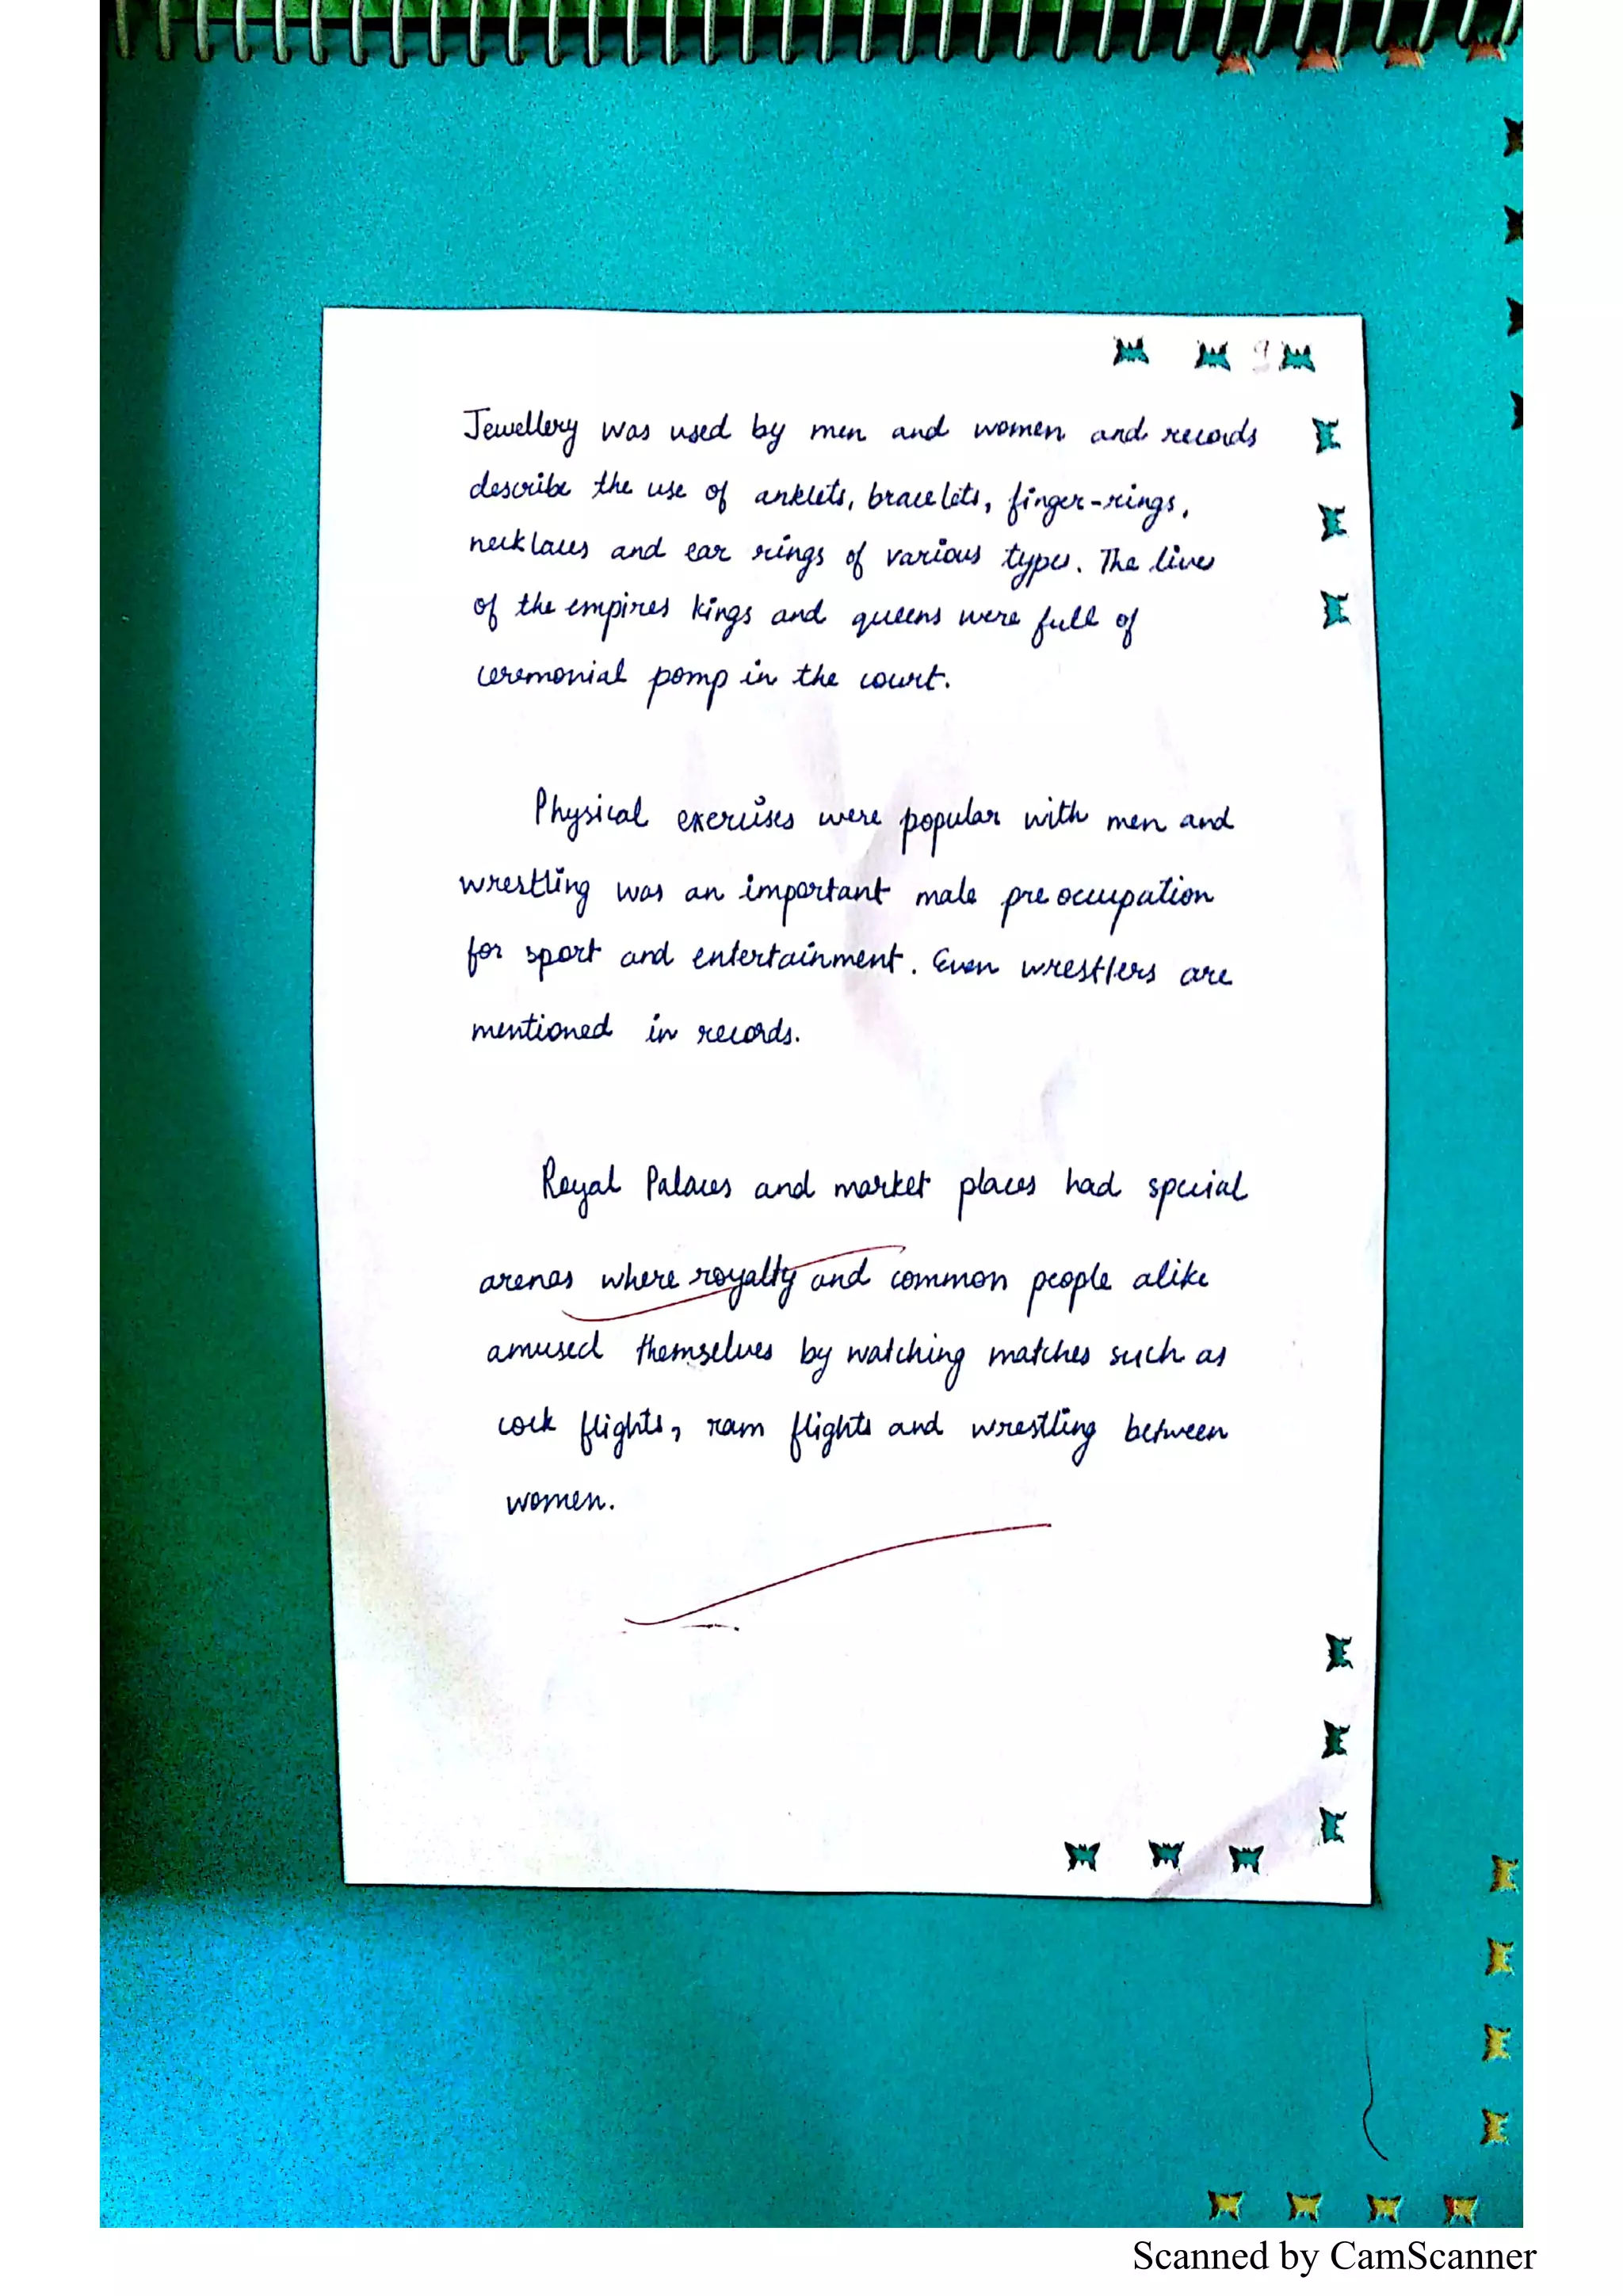 9
Jewellery was used by men and women and records
describe the use of anklets, bracelets, finger-rings,
necklaces and ear rings of various types. The lives
of the empires kings and queens were full of
ceremonial pomp in the court.
Physical exercises were popular with men and
wrestling was an important male preoccupation
for sport and entertainment. Even wrestlers are
mentioned in records.
Royal Palaces and market places had special
arenas where royalty and common people alike
amused themselves by watching matches such as
cock flights, ram flights and wrestling between
women.
Scanned by CamScanner